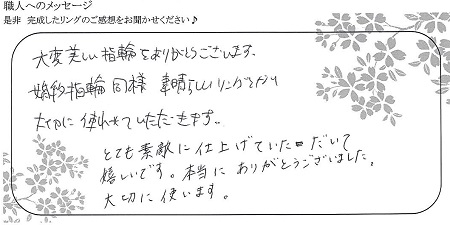 職人へのメッセージ
是非 完成したリングのご感想をお聞かせください♪
大変美しい指輪をありがとうございます。
婚約指輪同様 素晴らしいリングで
大切に使わせていただきます。
とても素敵に仕上げていただいて
嬉しいです。本当にありがとうございました。
大切に使います。